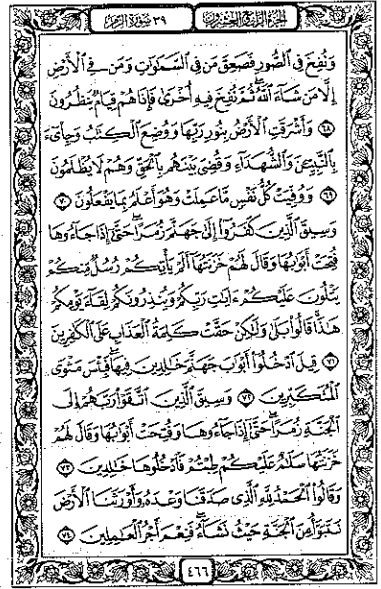 الجزء الرابع والعشرون
٣٩ سورة الزمر
وَنُفِخَ فِي الصُّورِ فَصَعِقَ مَن فِي السَّمَٰوَاتِ وَمَن فِي الْأَرْضِ
إِلَّا مَن شَاءَ اللَّهُ ثُمَّ نُفِخَ فِيهِ أُخْرَىٰ فَإِذَا هُمْ قِيَامٌ يَنظُرُونَ
٦٨ وَأَشْرَقَتِ الْأَرْضُ بِنُورِ رَبِّهَا وَوُضِعَ الْكِتَٰبُ وَجِايءَ
بِالنَّبِيِّنَ وَالشُّهَدَاءِ وَقُضِيَ بَيْنَهُم بِالْحَقِّ وَهُمْ لَا يُظْلَمُونَ
٦٩ وَوُفِّيَتْ كُلُّ نَفْسٍ مَّا عَمِلَتْ وَهُوَ أَعْلَمُ بِمَا يَفْعَلُونَ ٧٠
وَسِيقَ الَّذِينَ كَفَرُوا إِلَىٰ جَهَنَّمَ زُمَرًا حَتَّىٰ إِذَا جَاءُوهَا
فُتِحَتْ أَبْوَابُهَا وَقَالَ لَهُمْ خَزَنَتُهَا أَلَمْ يَأْتِكُمْ رُسُلٌ مِّنكُمْ
يَتْلُونَ عَلَيْكُمْ ءَايَاتِ رَبِّكُمْ وَيُنذِرُونَكُمْ لِقَاءَ يَوْمِكُمْ
هَٰذَا قَالُوا بَلَىٰ وَلَٰكِنْ حَقَّتْ كَلِمَةُ الْعَذَابِ عَلَى الْكَٰفِرِينَ
٧١ قِيلَ ادْخُلُوا أَبْوَابَ جَهَنَّمَ خَٰلِدِينَ فِيهَا فَبِئْسَ مَثْوَى
الْمُتَكَبِّرِينَ ٧٢ وَسِيقَ الَّذِينَ اتَّقَوْا رَبَّهُمْ إِلَى
الْجَنَّةِ زُمَرًا حَتَّىٰ إِذَا جَاءُوهَا وَفُتِحَتْ أَبْوَابُهَا وَقَالَ لَهُمْ
خَزَنَتُهَا سَلَٰمٌ عَلَيْكُمْ طِبْتُمْ فَادْخُلُوهَا خَٰلِدِينَ ٧٣
وَقَالُوا الْحَمْدُ لِلَّهِ الَّذِي صَدَقَنَا وَعْدَهُ وَأَوْرَثَنَا الْأَرْضَ
نَتَبَوَّأُ مِنَ الْجَنَّةِ حَيْثُ نَشَاءُ فَنِعْمَ أَجْرُ الْعَٰمِلِينَ ٧٤
٤٦٦